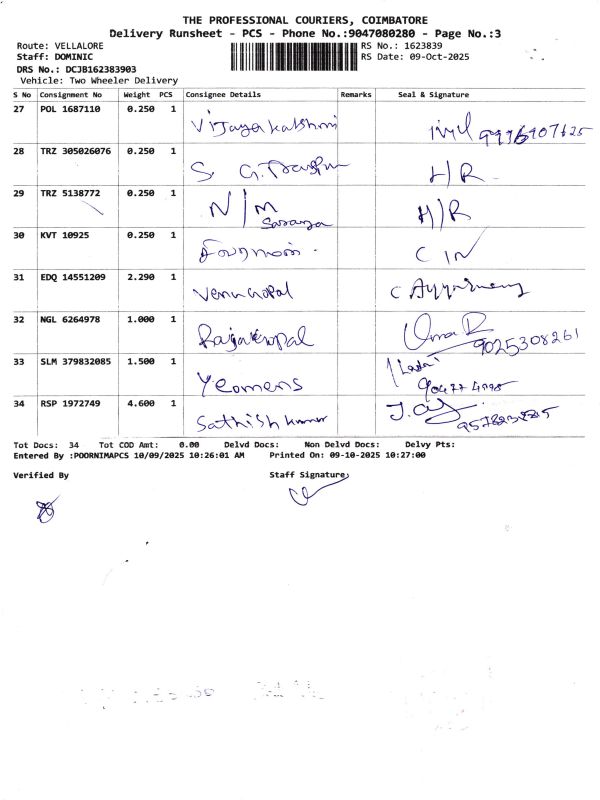 THE PROFESSIONAL COURIERS, COIMBATORE
Delivery Runsheet - PCS - Phone No.:9047080280 - Page No.:3
Route: VELLALORE RS No.: 1623839
Staff: DOMINIC RS Date: 09-Oct-2025
DRS No.: DCJB162383903
Vehicle: Two Wheeler Delivery
S No Consignment No Weight PCS Consignee Details Remarks Seal & Signature
27 POL 1687110 0.250 1 Vijayalakshmi
28 TRZ 305026076 0.250 1 S. G. H/R
29 TRZ 5138772 0.250 1 N/M H/R
Saranya
30 KVT 10925 0.250 1 சிவராமன் C IN
31 EDQ 14551209 2.290 1 Venu Gopal C
32 NGL 6264978 1.000 1 Rajagopal Uma R
9025308261
33 SLM 379832085 1.500 1 Yeomens
34 RSP 1972749 4.600 1 Sathish kumar
Tot Docs: 34 Tot COD Amt: 0.00 Delvd Docs: Non Delvd Docs: Delvy Pts:
Entered By :POORNIMAPCS 10/09/2025 10:26:01 AM Printed On: 09-10-2025 10:27:00
Verified By Staff Signature: